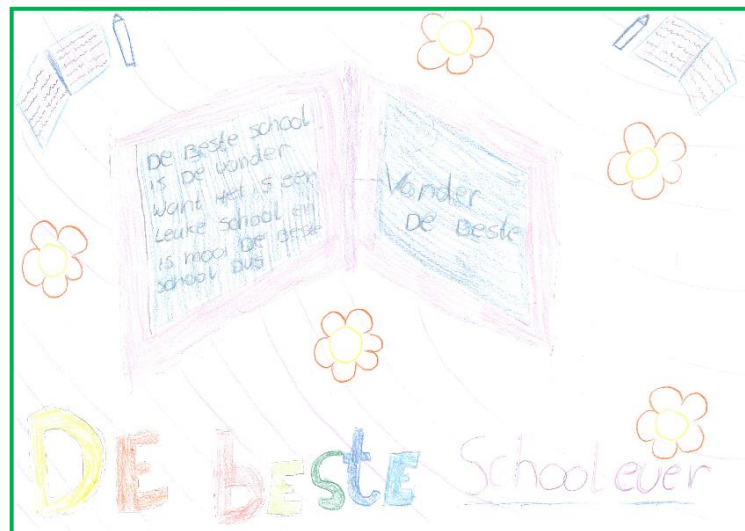 De Beste school
is De vonder
want Het is een
Leuke School en
is mooi De Beste
school Dus
Vonder
De Beste
DE bESTE School ever